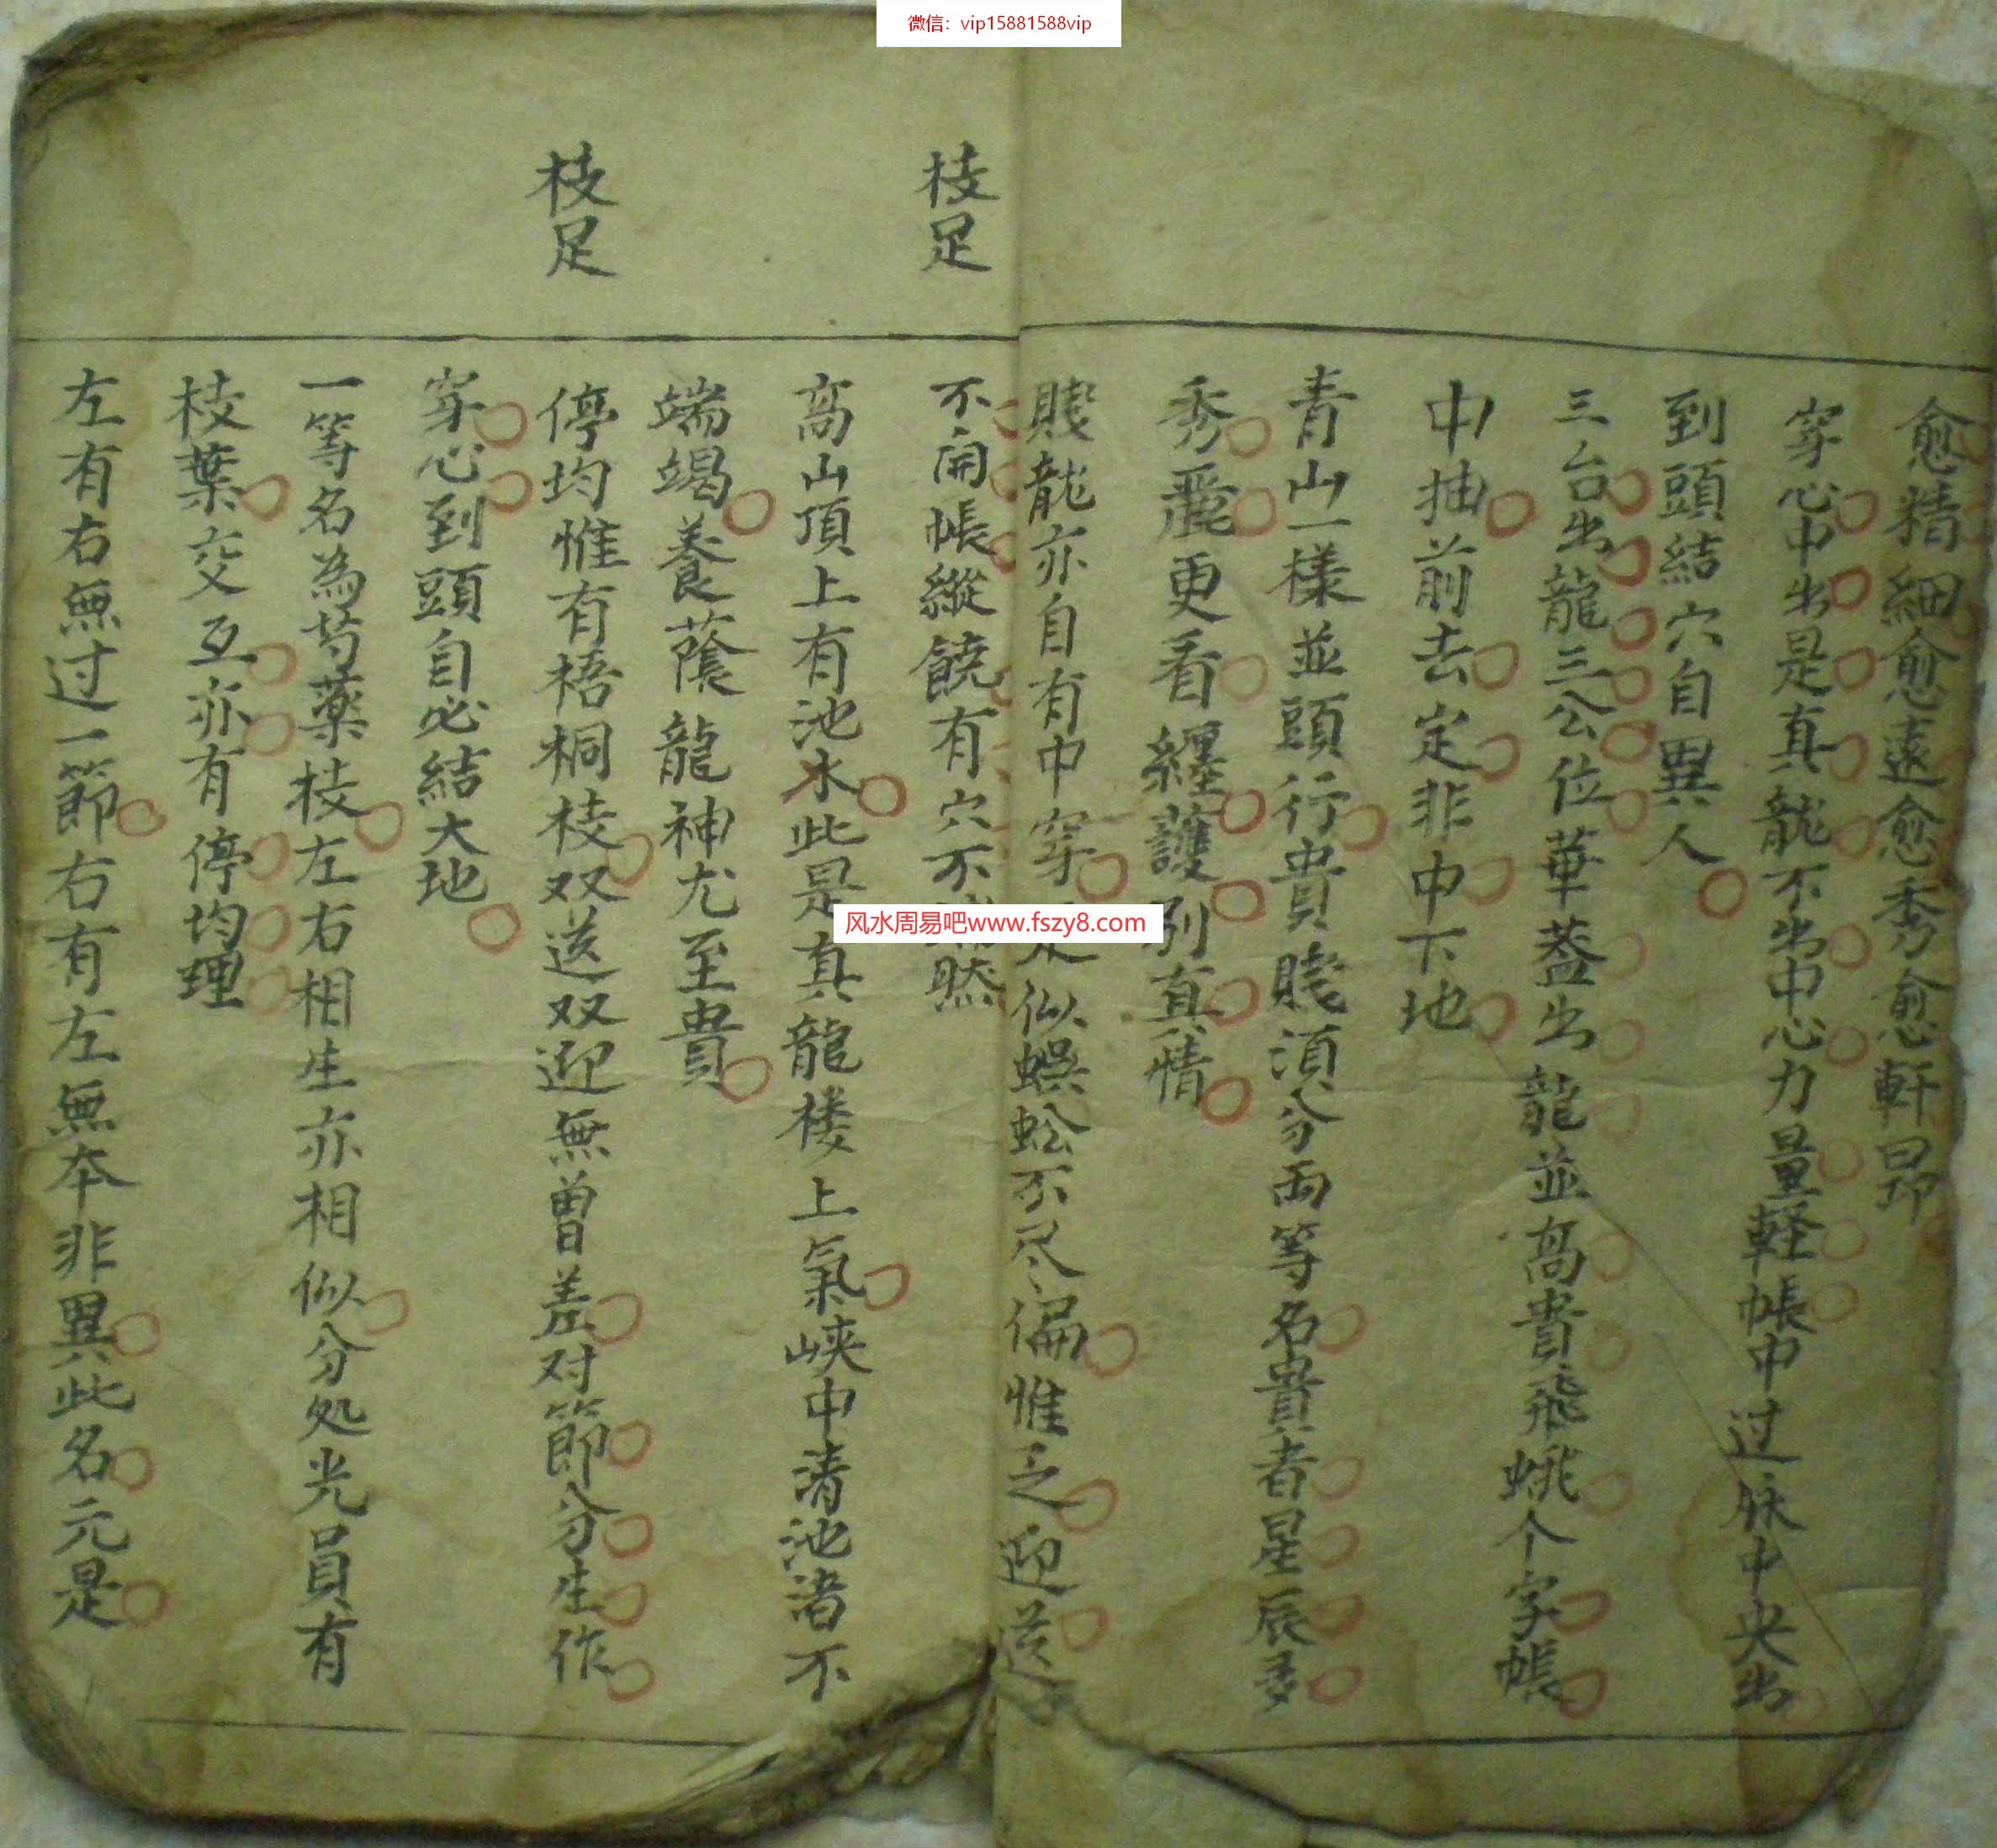 微信：vip15881588vip
愈精細愈遠愈秀愈軒昂
穿心中出是真龍不出中心力量軽帳中过脉中央出
到頭結穴自異人
三台出龍三公位華蓋出龍並高貴飛蛾个字帳
中抽前去定非中下地
青山一樣並頭行貴賤須分两等名貴者星辰多
秀麗更看纏護别真情
賤龍亦自有中穿 似蜈蚣不尽偏惟乏迎送
不開帳縱饒有穴不 然
枝足
高山頂上有池水此是真龍楼上氣峡中清池渚不
端竭養蔭龍神尤至貴
枝足
停均惟有梧桐枝双送双迎無曽差对節分生作
穿心到頭自必結大地
一等名為芍藥枝左右相生亦相似分処光員有
枝葉交互亦有停均理
左有右無过一節右有左無本非異此名元是
风水周易吧www.fszy8.com